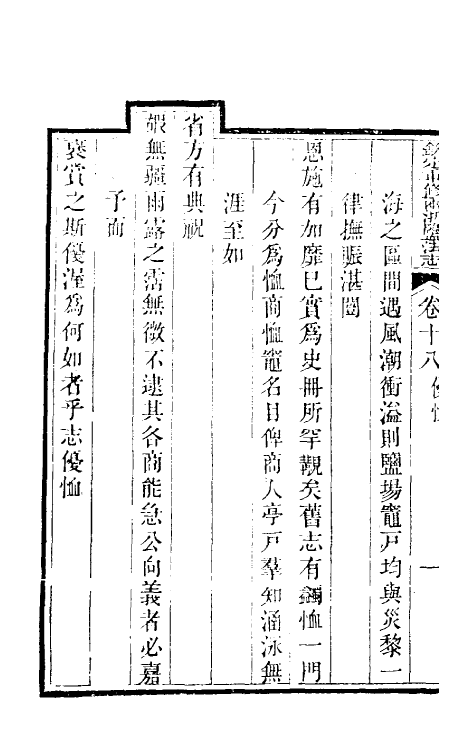 欽定重修兩浙鹽法志
卷十八 優恤
一
海之區間遇風潮衝溢則鹽場竈戸均與災黎一
律撫賑湛闓
恩施有加靡已實爲史冊所罕覯矣舊志有蠲恤一門
今分爲恤商恤竈名目俾商人亭戸羣知涵泳無
涯至如
省方有典祝
嘏無疆雨露之霑無微不逮其各商能急公向義者必嘉
予而
褒賞之斯優渥爲何如者乎志優恤